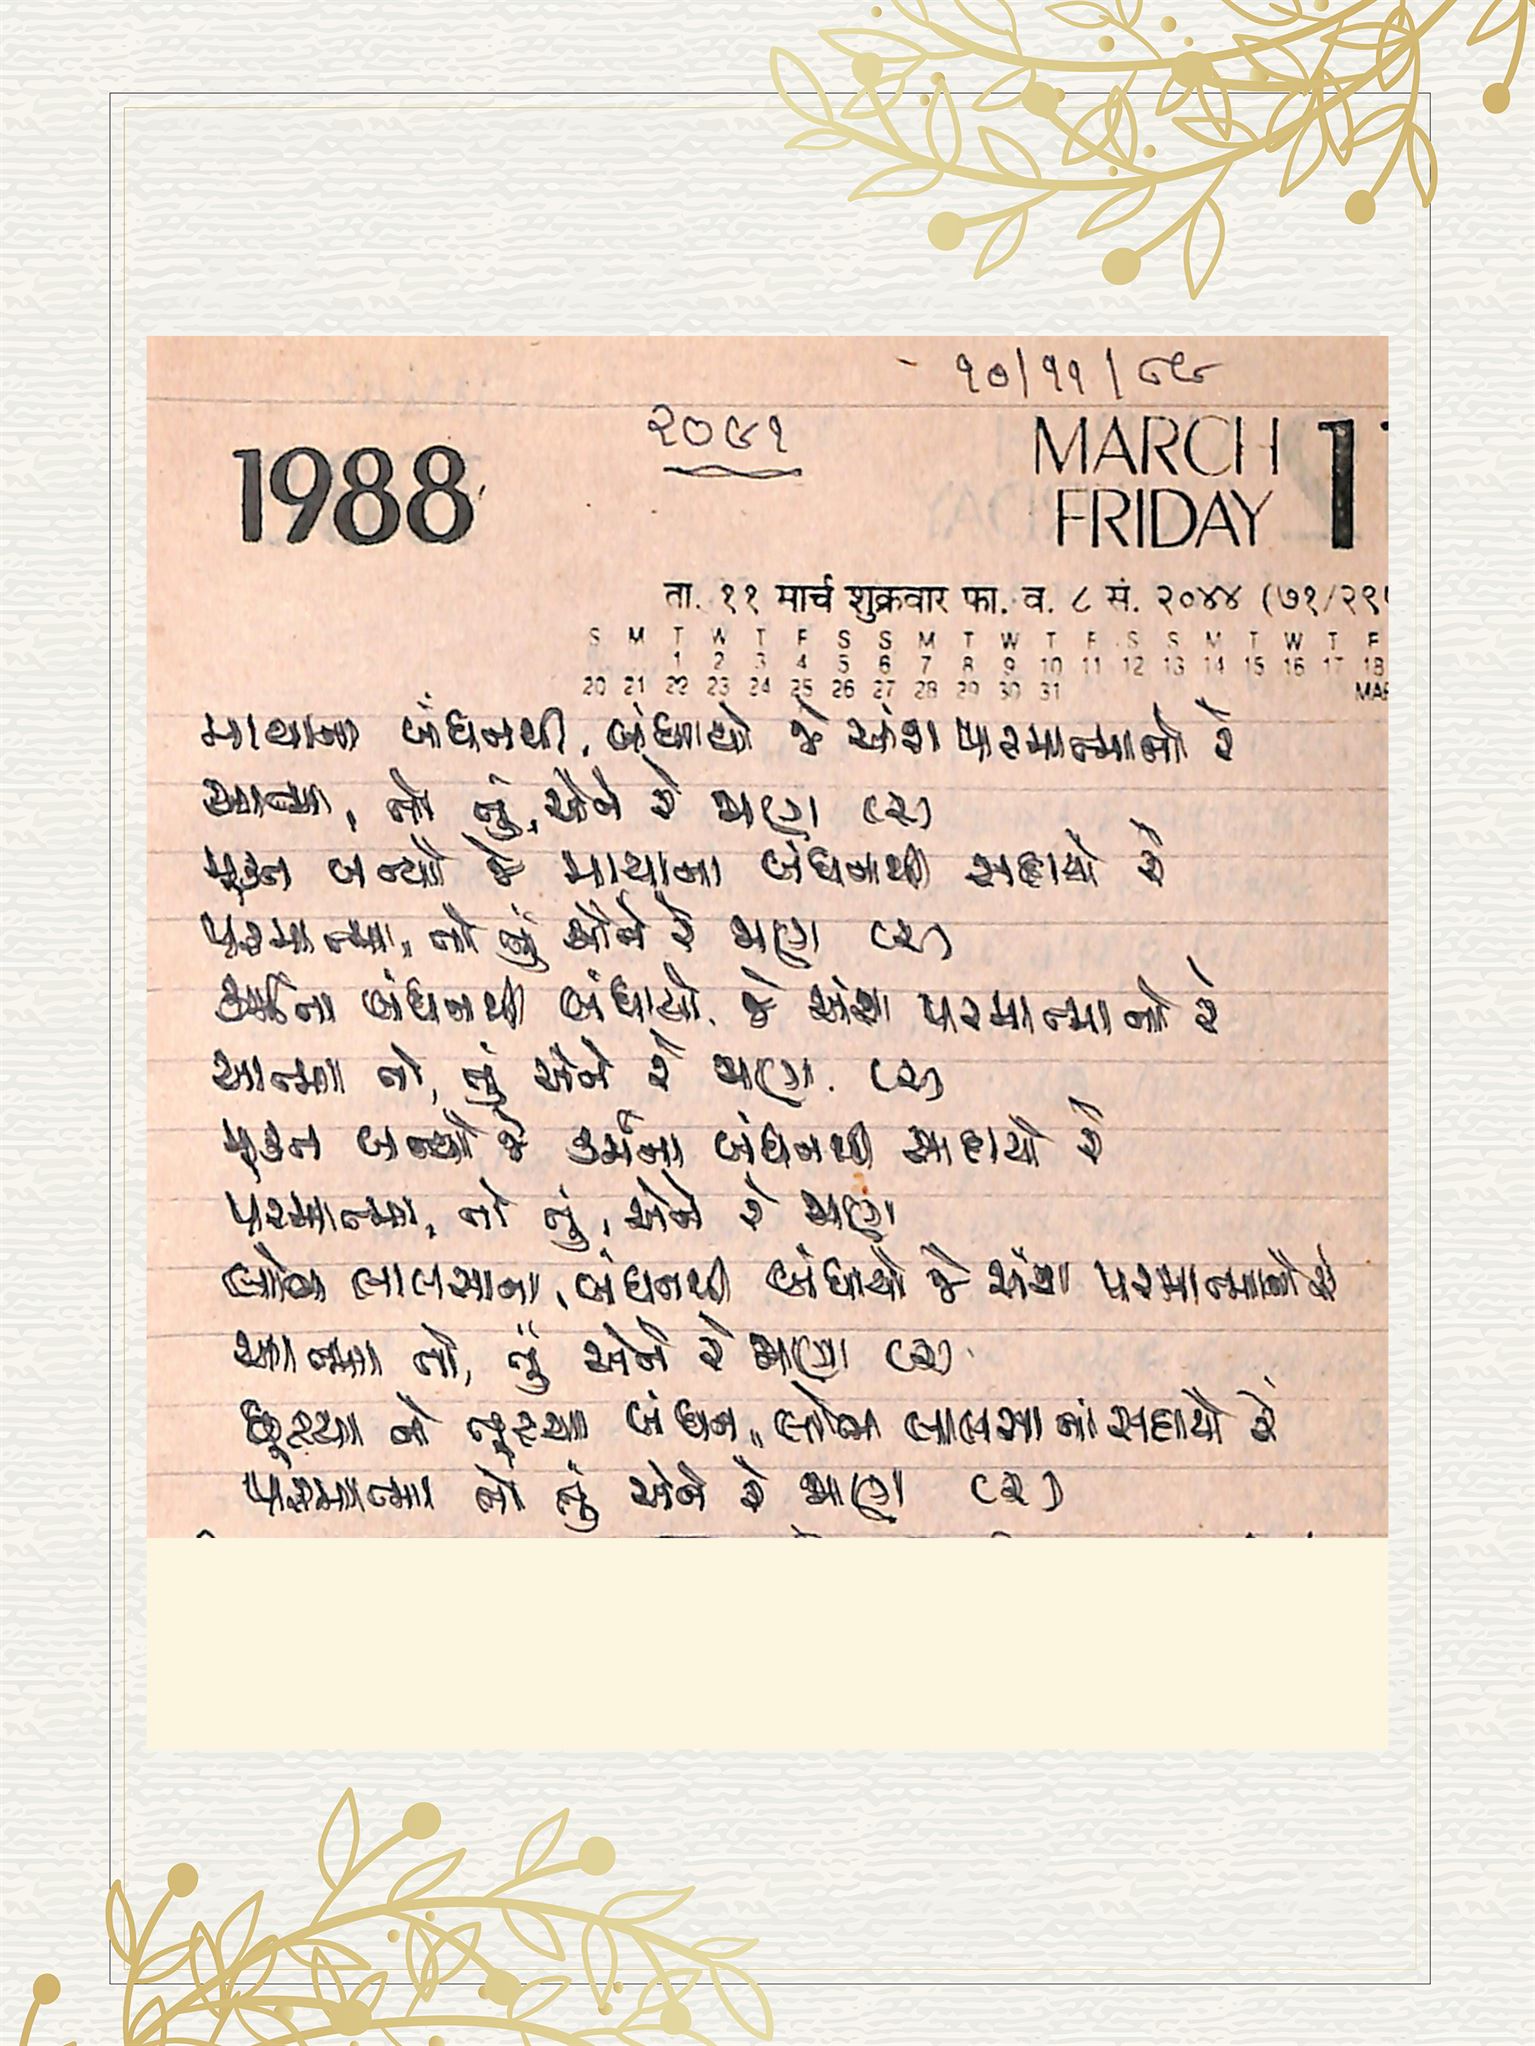 ૧૦/૧૧/૮૯
૨૦૯૧
1988
MARCH
FRIDAY
ता. ११ मार्च शुक्रवार फा. व. ८ सं. २०४४ (७१/२९५
S M T W T F S S M T W T F S S M T W T F
1 2 3 4 5 6 7 8 9 10 11 12 13 14 15 16 17 18
20 21 22 23 24 25 26 27 28 29 30 31 MAR
માયાના બંધનથી, બંધાયો જે અંશ પરમાત્માનો રે
આત્મા, તો તું, એને રે ભણ (૨)
મૂક્ત બન્યો જે માયાના બંધનથી સહાયો રે
પરમાત્મા, તો તું એને રે ભણ (૨)
કર્મના બંધનથી બંધાયો, જે અંશ પરમાત્માનો રે
આત્મા તો, તું એને રે ભણ. (૨)
મૂક્ત બન્યો જે કર્મના બંધનથી સહાયો રે
પરમાત્મા, તો તું, એને રે ભણ
લોભ લાલસાના, બંધનથી બંધાયો જે અંશ પરમાત્માનો રે
આત્મા તો, તું એને રે ભણ (૨)
ને બંધન, લોભ લાલસાનાં સહાયો રે
પરમાત્મા તો તું એને રે ભણ (૨)